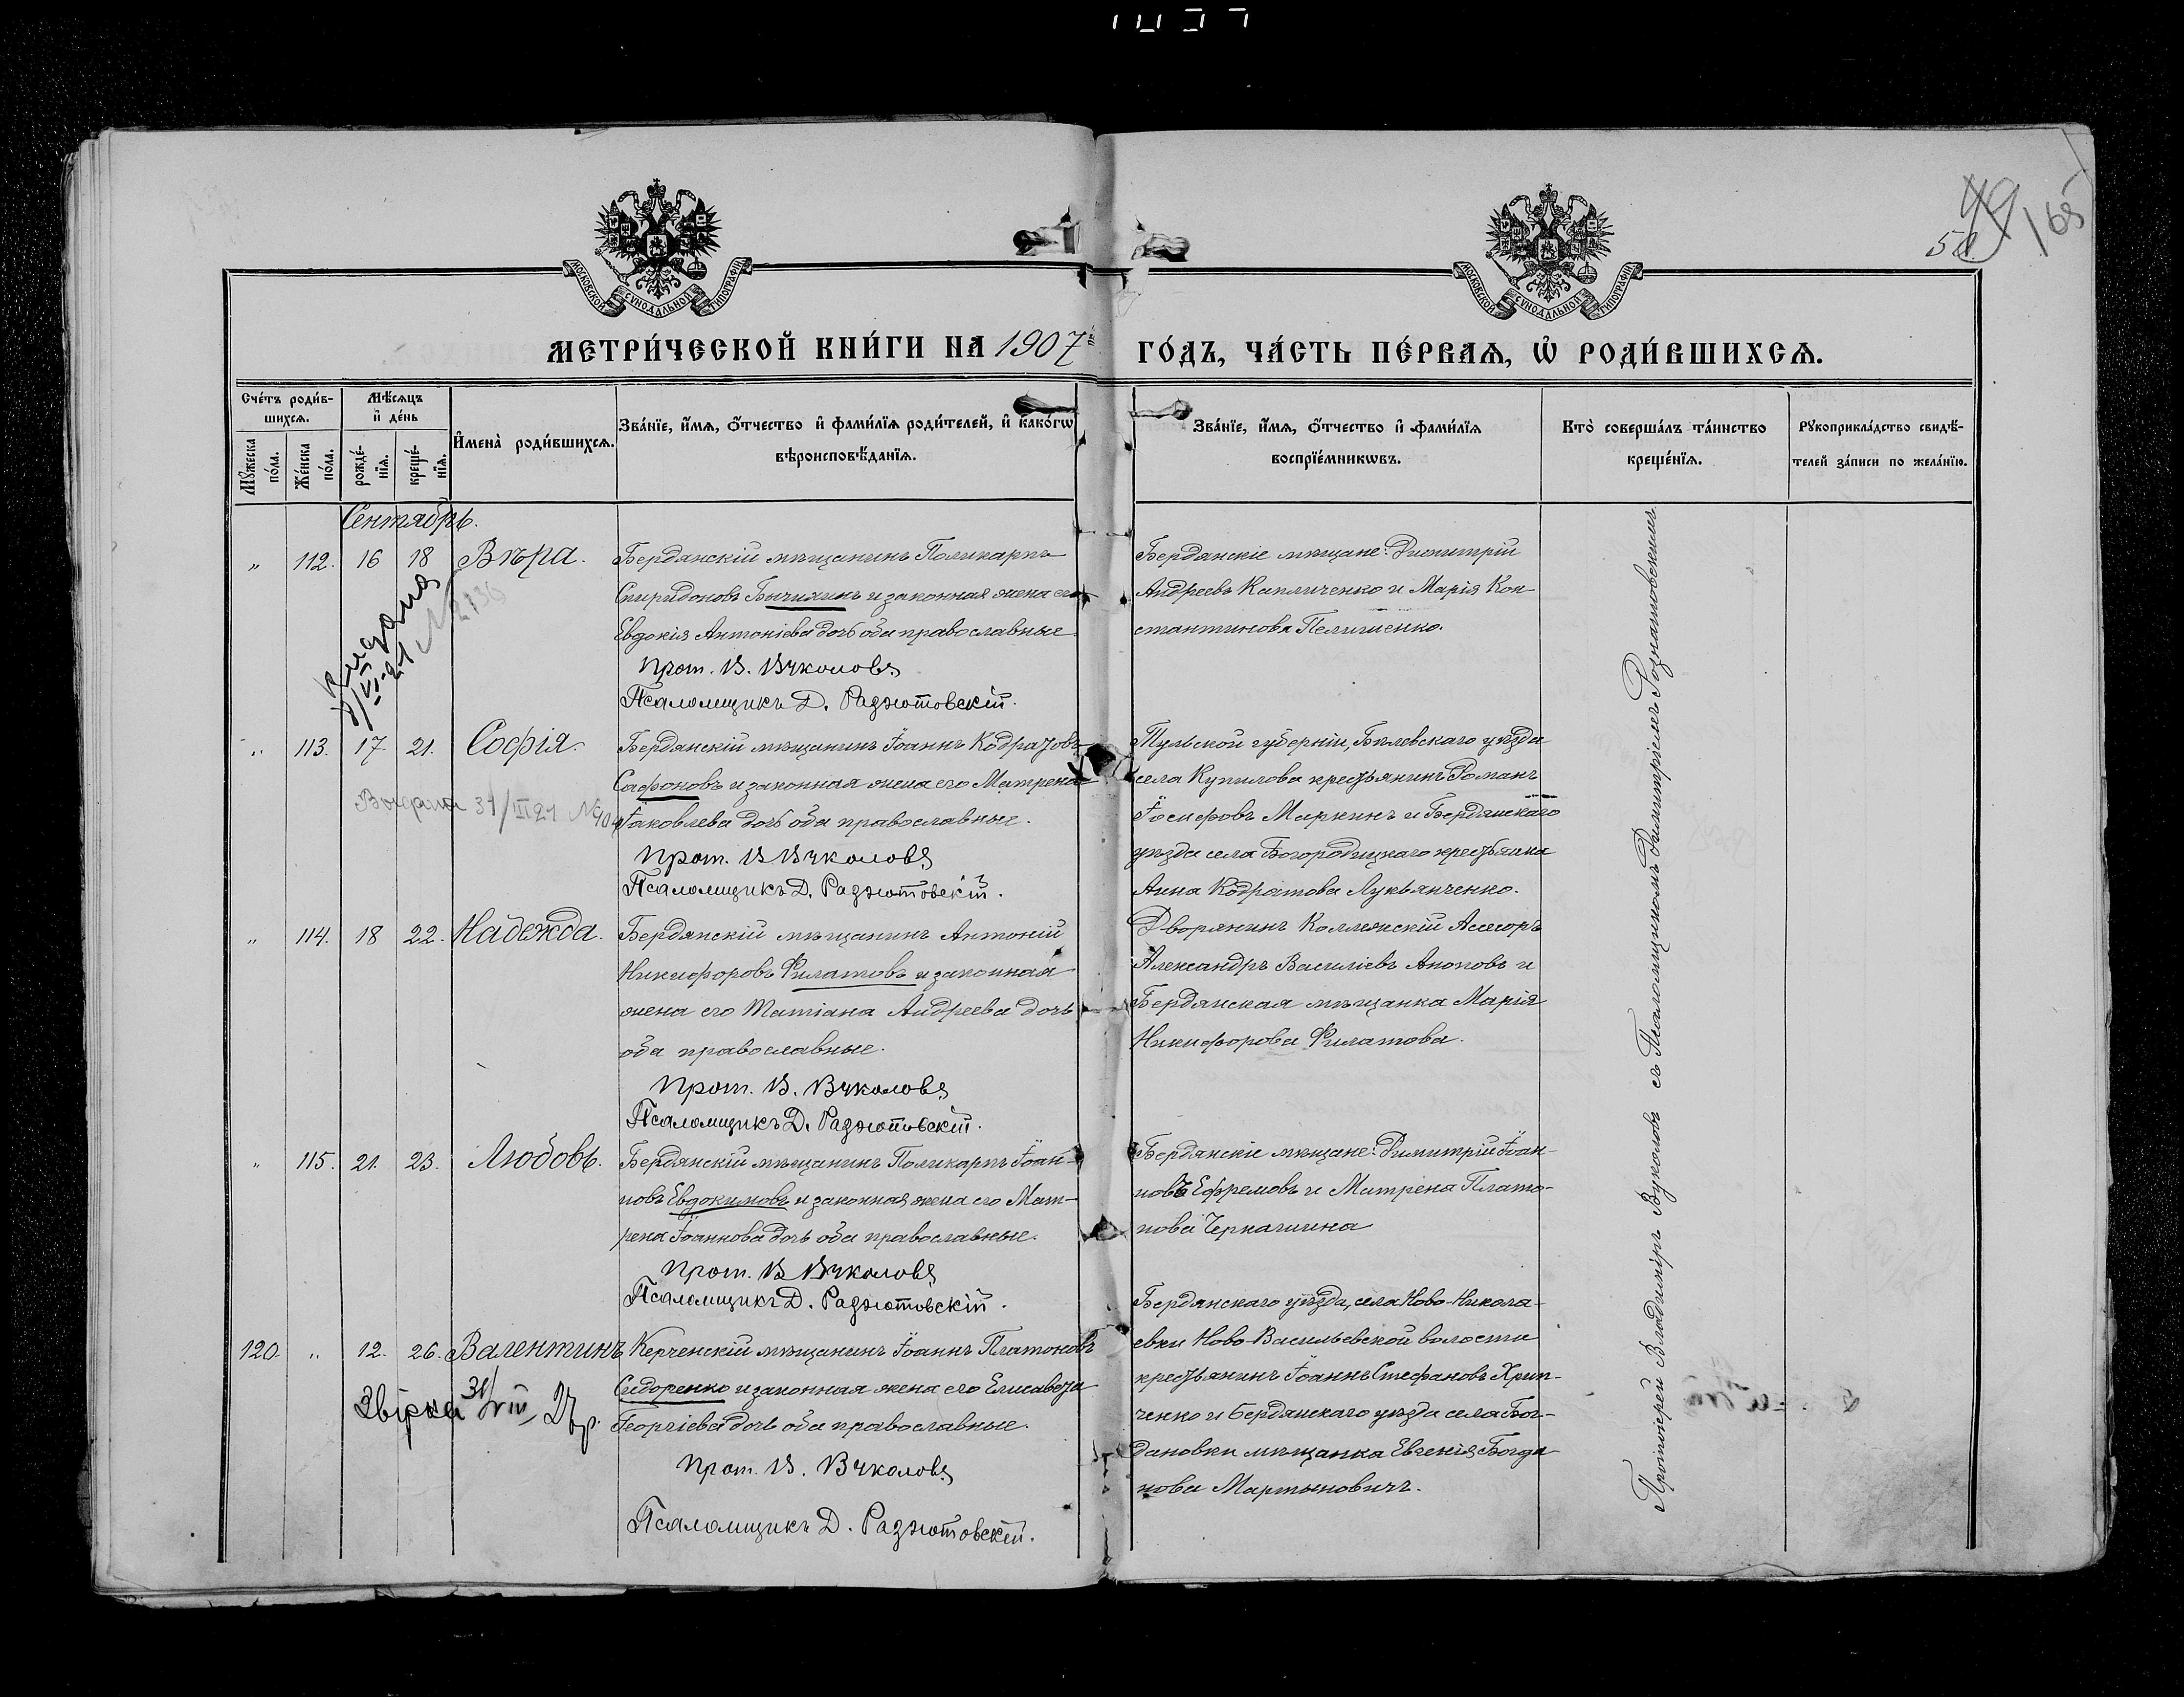 49
50
165
МОСКОВСКОЙ СѴНОДАЛЬНОЙ ТИПОГРАФІИ
МОСКОВСКОЙ СѴНОДАЛЬНОЙ ТИПОГРАФІИ
МЕТРИ́ЧЕСКОЙ КНИ́ГИ НА 1907й ГО́ДЪ, ЧА́СТЬ ПЕ́РВАѦ, Ѽ РОДИ́ВШИХСѦ.
Сче́тъ роди́в-
шихсѧ.
Мꙋжеска по́ла.
Же́нска по́ла.
Мѣ́сѧцъ
и҆ де́нь
рожде́-
нїѧ.
креще́-
нїѧ.
И҆мена̀ роди́вшихсѧ.
Зва́нїе, и҆́мѧ, ѻ҆́тчество и҆ фами́лїѧ роди́телей, и҆ како́гѡ
вѣроисповѣ́данїѧ.
Зва́нїе, и҆́мѧ, ѻ҆́тчество и҆ фами́лїѧ
воспрїе́мникѡвъ.
Кто̀ соверша́лъ та́инство
креще́нїѧ.
Рꙋкоприкла́дство свидѣ́-
телей за́писи по жела́нїю.
Сентябрь.
" 112. 16 18 Вѣра.
Бердянскій мѣщанинъ Поликарпъ
Спиридоновъ Бычихинъ и законная жена его
Евдокія Антоніева дочь оба православные
Прот. В. Вуколовъ
Псаломщикъ Д. Разнотовскій.
Бердянскіе мѣщане: Димитрій
Андреевъ Капличенко и Марія Кон-
стантинова Пелишенко.
Видана
" 113. 17. 21. Софія.
Бердянскій мѣщанинъ Іоаннъ Кодратовъ
Сафоновъ и законная жена его Матрена
Іаковлева дочь оба православные.
Прот. В Вуколовъ
Псаломщикъ Д. Разнотовскій.
Тульской губерніи, Бѣлевскаго уѣзда
села Купилова крестьянинъ Романъ
Іосифовъ Маркинъ и Бердянскаго
уѣзда села Богородицкаго крестьянка
Анна Кодратова Лукьянченко.
Выдана 31/III 21 №
" 114. 18 22. Надежда.
Бердянскій мѣщанинъ Антоній
Никифоровъ Филатовъ и законная
жена его Татіана Андреева дочь
оба православные.
Прот. В. Вуколовъ
Псаломщикъ Д. Разнотовскій.
Дворянинъ Коллежскій Асесоръ
Александръ Василіевъ Аноповъ и
Бердянская мѣщанка Марія
Никифорова Филатова.
" 115. 21. 23. Любовь.
Бердянскій мѣщанинъ Поликарпъ Іоан-
новъ Евдокимовъ и законная жена его Мат-
рена Іоаннова дочь оба православные.
Прот. В Вуколовъ
Псаломщикъ Д. Разнотовскій.
Бердянскіе мѣщане: Димитрій Іоан-
новъ Ефремовъ и Матрена Плато-
нова Черкашина
120. " 12. 26. Валентинъ
Керченскій мѣщанинъ Іоаннъ Платоновъ
Сидоренко и законная жена его Елисавета
Георгіева дочь оба православные.
Прот. В. Вуколовъ
Псаломщикъ Д. Разнотовскій.
Бердянскаго уѣзда, села Ново-Никола-
евки Ново-Васильевской волости
крестьянинъ Іоаннъ Стефановъ Хрип-
ченко и Бердянскаго уѣзда села Бог-
дановки мѣщанка Евгенія Богда
нова Мартыновичъ.
Звірка 31/VIII 27р.
Протоіерей Владиміръ Вуколовъ съ Псаломщикомъ Димитріемъ Рознатовскимъ